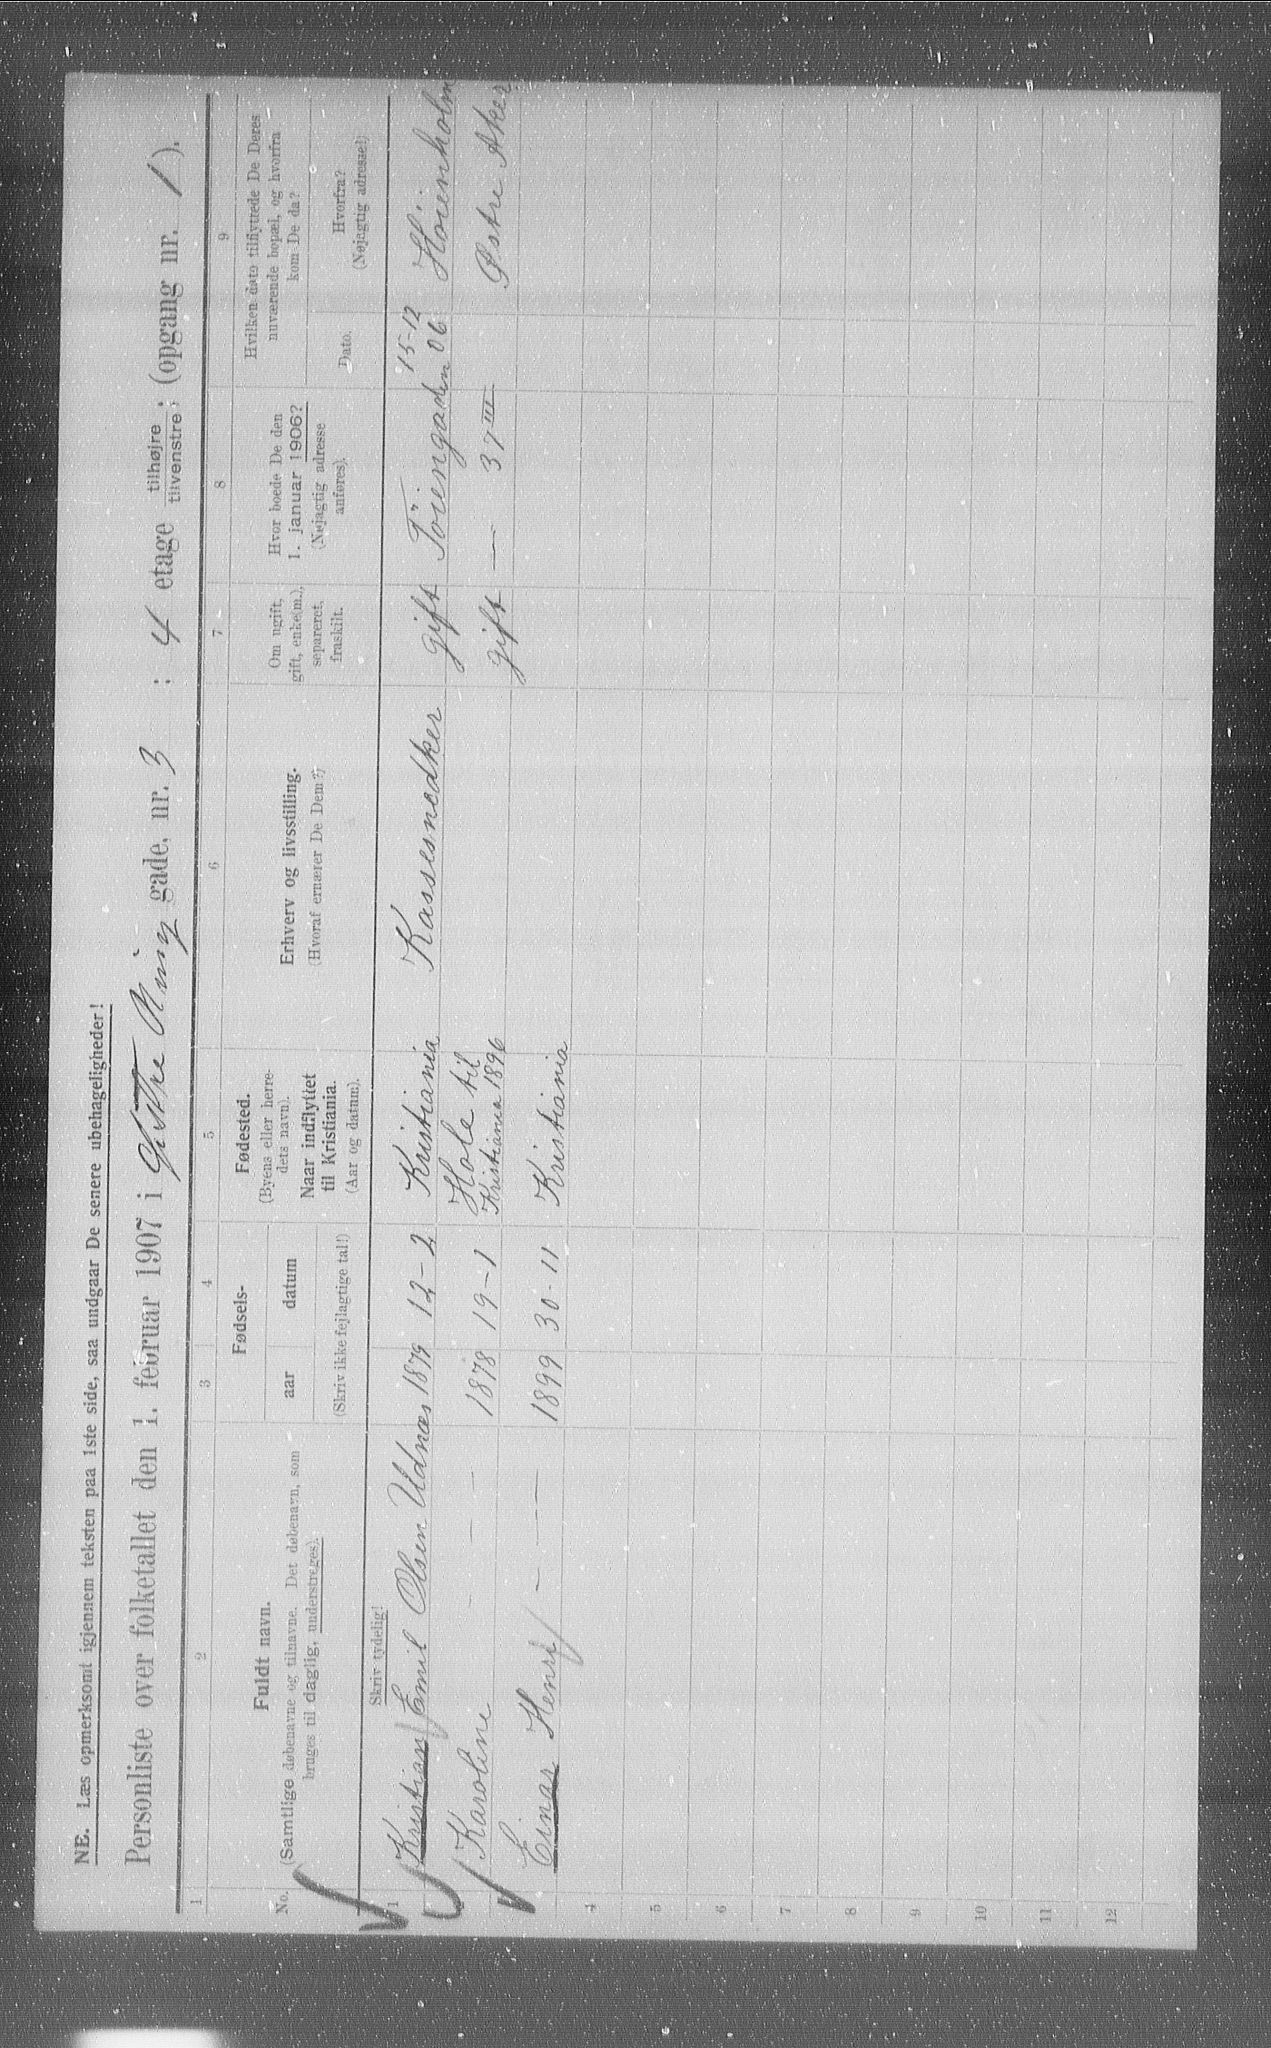 NB. Læs opmerksomt igjennem teksten paa 1ste side, saa undgaar De senere ubehageligheder!
Personliste over folketallet den 1. februar 1907 i Gythe Ring gade, nr. 3 : 4 etage tilhøjre : tilvenstre ; (opgang nr. 1).
1 2 3 4 5 6 7 8 9
No.
Fuldt navn.
(Samtlige døbenavne og tilnavne. Det døbenavn, som
bruges til daglig, understreges).
Fødsels-
aar datum
(Skriv ikke fejlagtige tal!)
Fødested.
(Byens eller herre-
dets navn).
Naar indflyttet
til Kristiania.
(Aar og datum).
Erhverv og livsstilling.
(Hvoraf ernærer De Dem?)
Om ugift,
gift, enke(m.),
separeret,
fraskilt.
Hvor boede De den
1. januar 1906?
(Nøjagtig adresse
anføres).
Hvilken dato tilflyttede De Deres
nuværende bopæl, og hvorfra
kom De da?
Dato.
Hvorfra?
(Nøjagtig adresse!)
Skriv tydelig!
1 Kristian Emil Olsen Udnæs 1879 12-2 Kristiania Kassesnedker gift Töiengaden 15-12 06 Höienholm
Karoline — — — 1878 19-1 Hole til Kristiania 1896 gift — 37 III Østre Aker
Einar Henry — — — 1899 30-11 Kristiania
4
5
6
7
8
9
10
11
12